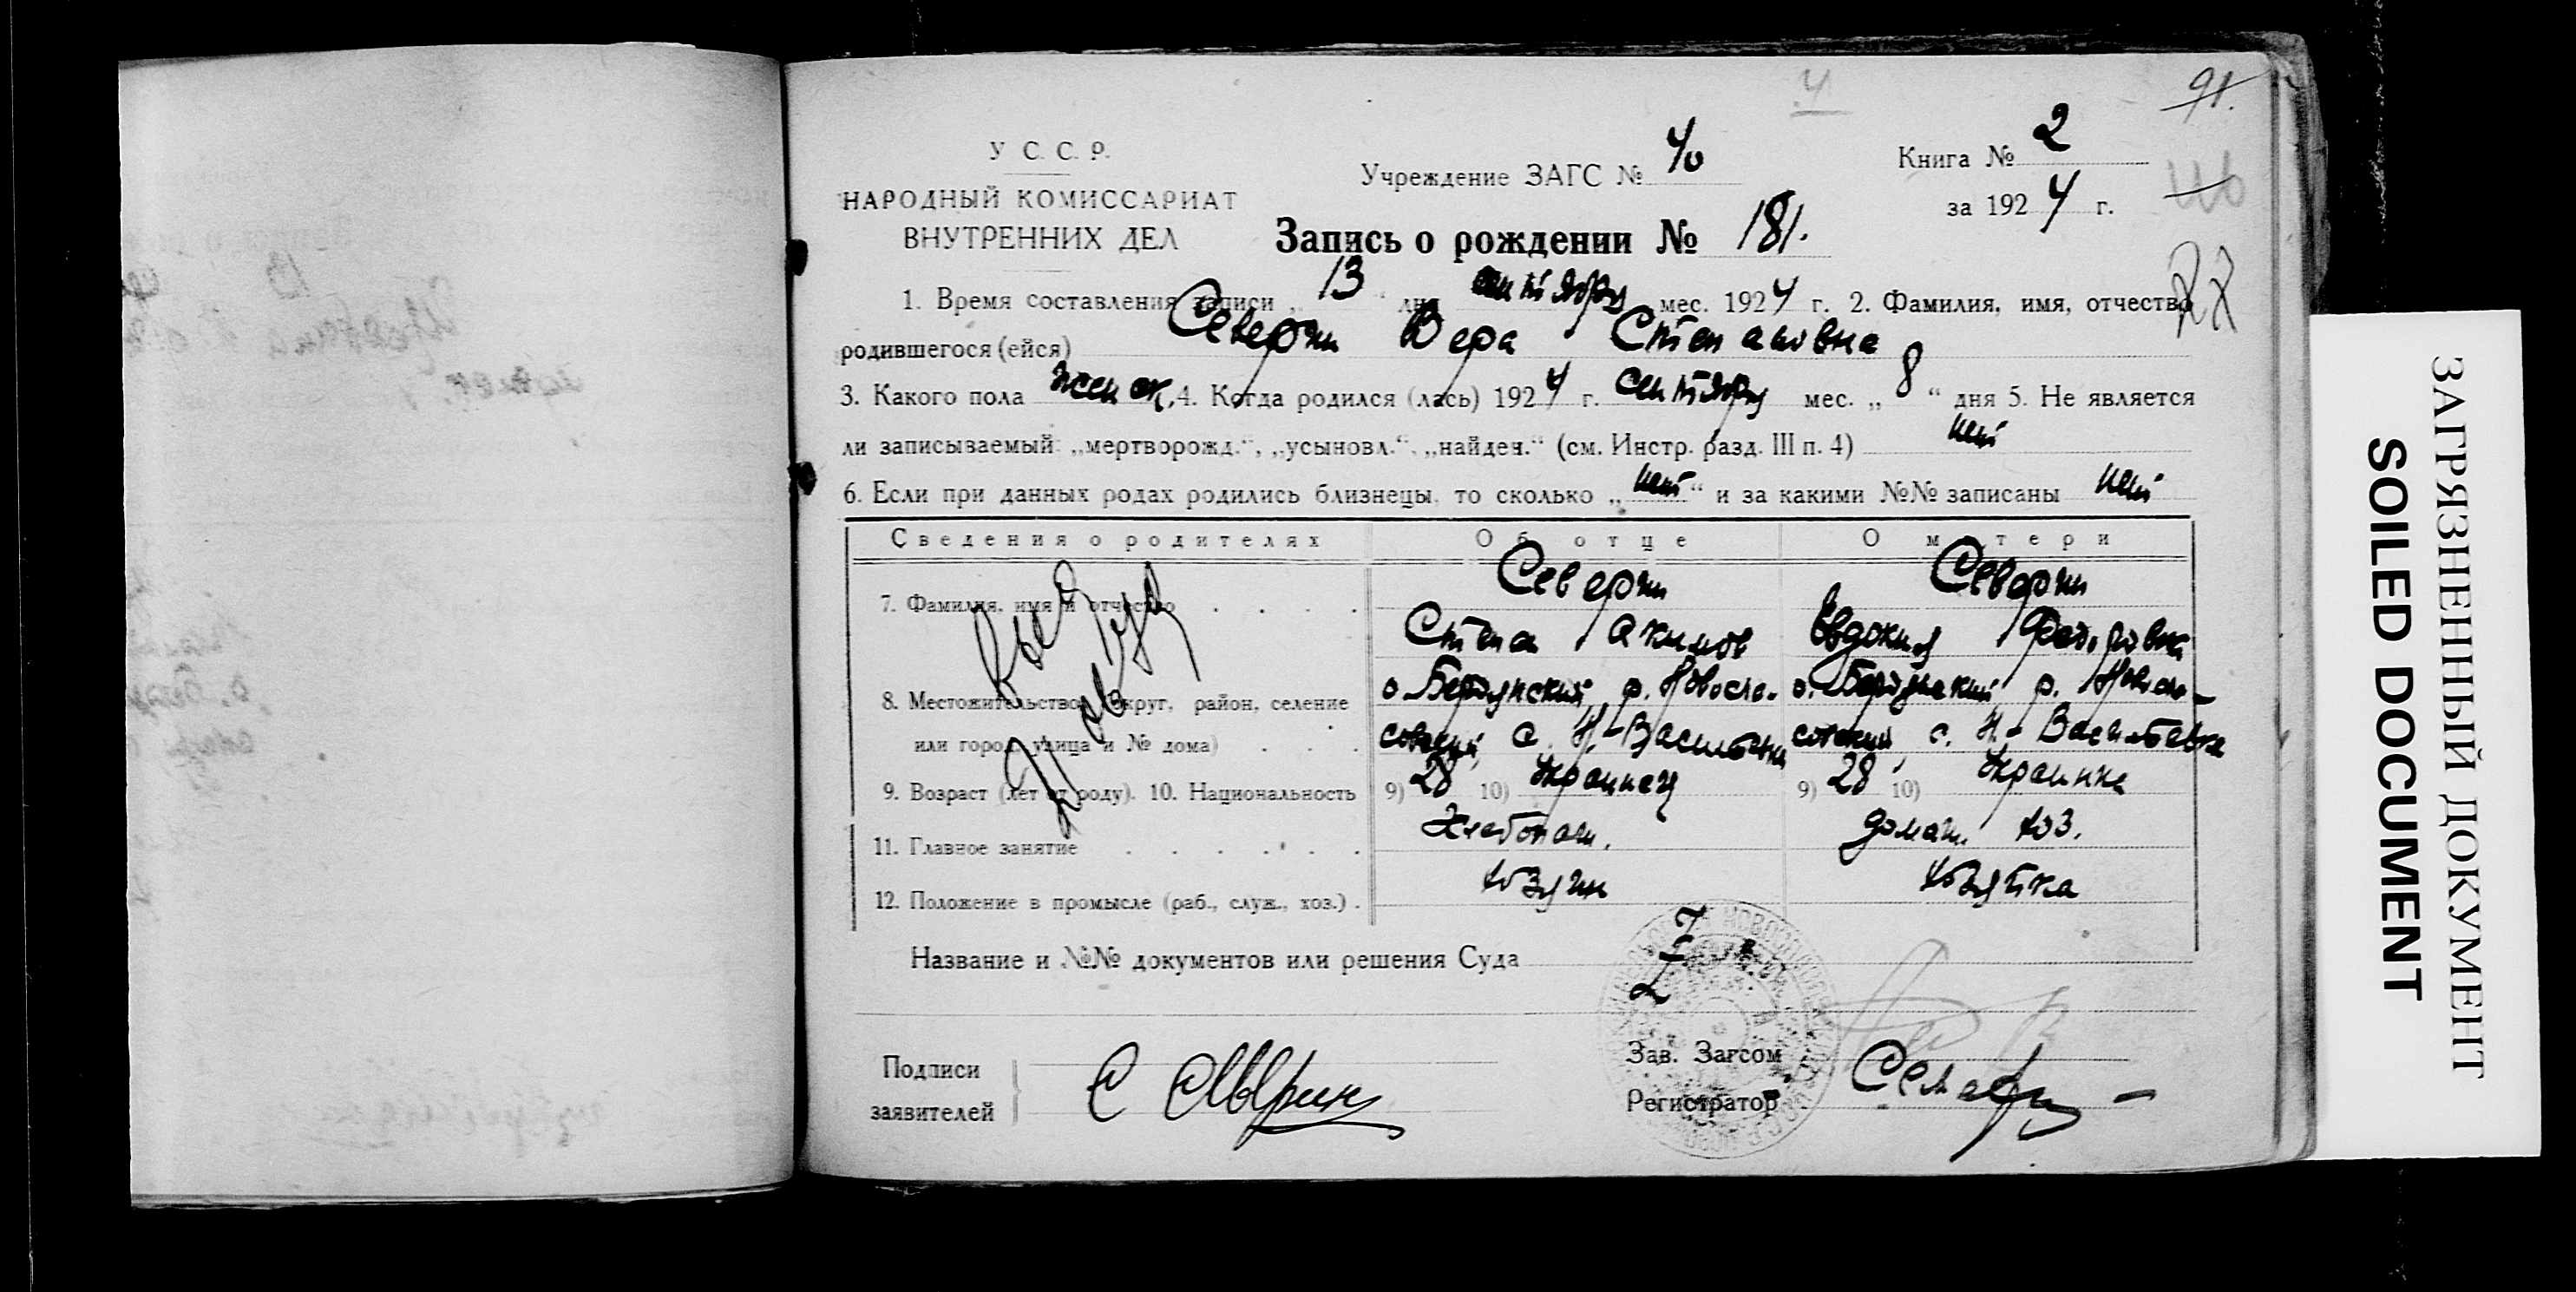 4
91.
У С. С. Р.
НАРОДНЫЙ КОМИССАРИАТ
ВНУТРЕННИХ ДЕЛ
Учреждение ЗАГС № 40
Книга № 2
за 1924 г.
Запись о рождении № 181.
1. Время составления записи „ 13 “ дня сентября мес. 1924 г. 2. Фамилия, имя, отчество
родившегося (ейся) Северин Вера Степановна
3. Какого пола женск. 4. Когда родился (лась) 1924 г. сентября мес. „ 8 “ дня 5. Не является
ли записываемый: „мертворожд.“, „усыновл.“, „найден.“ (см. Инстр. разд. III п. 4) нет
6. Если при данных родах родились близнецы, то сколько „ нет “ и за какими №№ записаны нет
Сведения о родителях Об отце О матери
7. Фамилия, имя и отчество Северин Северин
Степан Акимов Евдокия Федоровна
8. Местожительство (округ, район, селение о. Бердянский, р. Новоспа- о. Бердянский р. Новоспа-
или город, улица и № дома) совский, с. Н-Васильевка совский, с. Н-Васильевка
9. Возраст (лет от роду). 10. Национальность 9) 28 10) Украинец 9) 28 10) Украинка
11. Главное занятие Хлебопаш. домаш. хоз.
12. Положение в промысле (раб., служ., хоз.) хозяин хозяйка
Название и №№ документов или решения Суда
Подписи
заявителей
С Северин
Зав. Загсом
Регистратор
ЗАГРЯЗНЕННЫЙ ДОКУМЕНТ
SOILED DOCUMENT